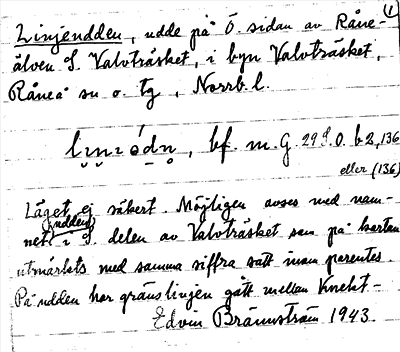 (1
Linjeudden, udde på Ö. sidan av Råne-
älven S. Valvträsket, i byn Valvträsket,
Råneå sn o. tg, Norrb. l.
bf. m. G. 29 S.O. b 2, 136
eller (136)
Läget ej säkert. Möjligen avses med nam-
net udden i S. delen av Valvträsket som på kartan
utmärkts med samma siffra satt inom parentes.
På udden har gränslinjen gått mellan Knekt-
Edvin Brännström 1943.